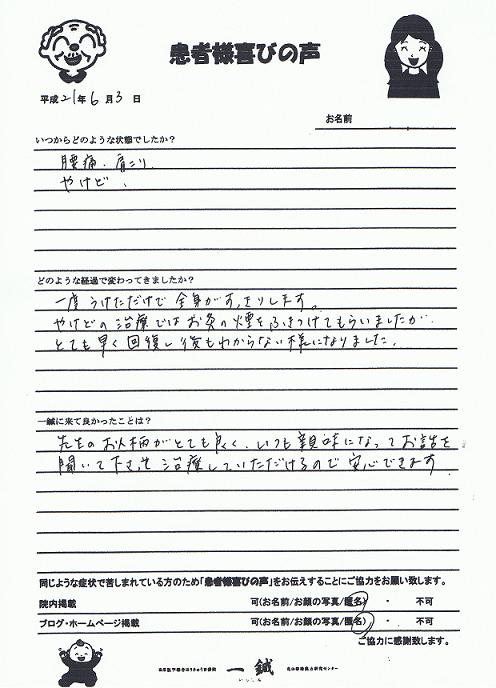 患者様喜びの声
平成21年6月3日
お名前
いつからどのような状態でしたか?
腰痛・肩こり
やけど
どのような経過で変わってきましたか?
一度うけただけで全身がすっきりします。
やけどの治療ではお灸の煙をふきつけてもらいましたが
とても早く回復し後もわからない様になりました。
一鍼に来て良かったことは?
先生のお人柄がとても良く、いつも親味になってお話を
聞いて下さって治療していただけるので安心できます
同じような症状で苦しまれている方のため「患者様喜びの声」をお伝えすることにご協力をお願い致します。
院内掲載 可(お名前/お顔の写真/匿名) ・ 不可
ブログ・ホームページ掲載 可(お名前/お顔の写真/匿名) ・ 不可
ご協力に感謝致します。
一鍼
いっしん